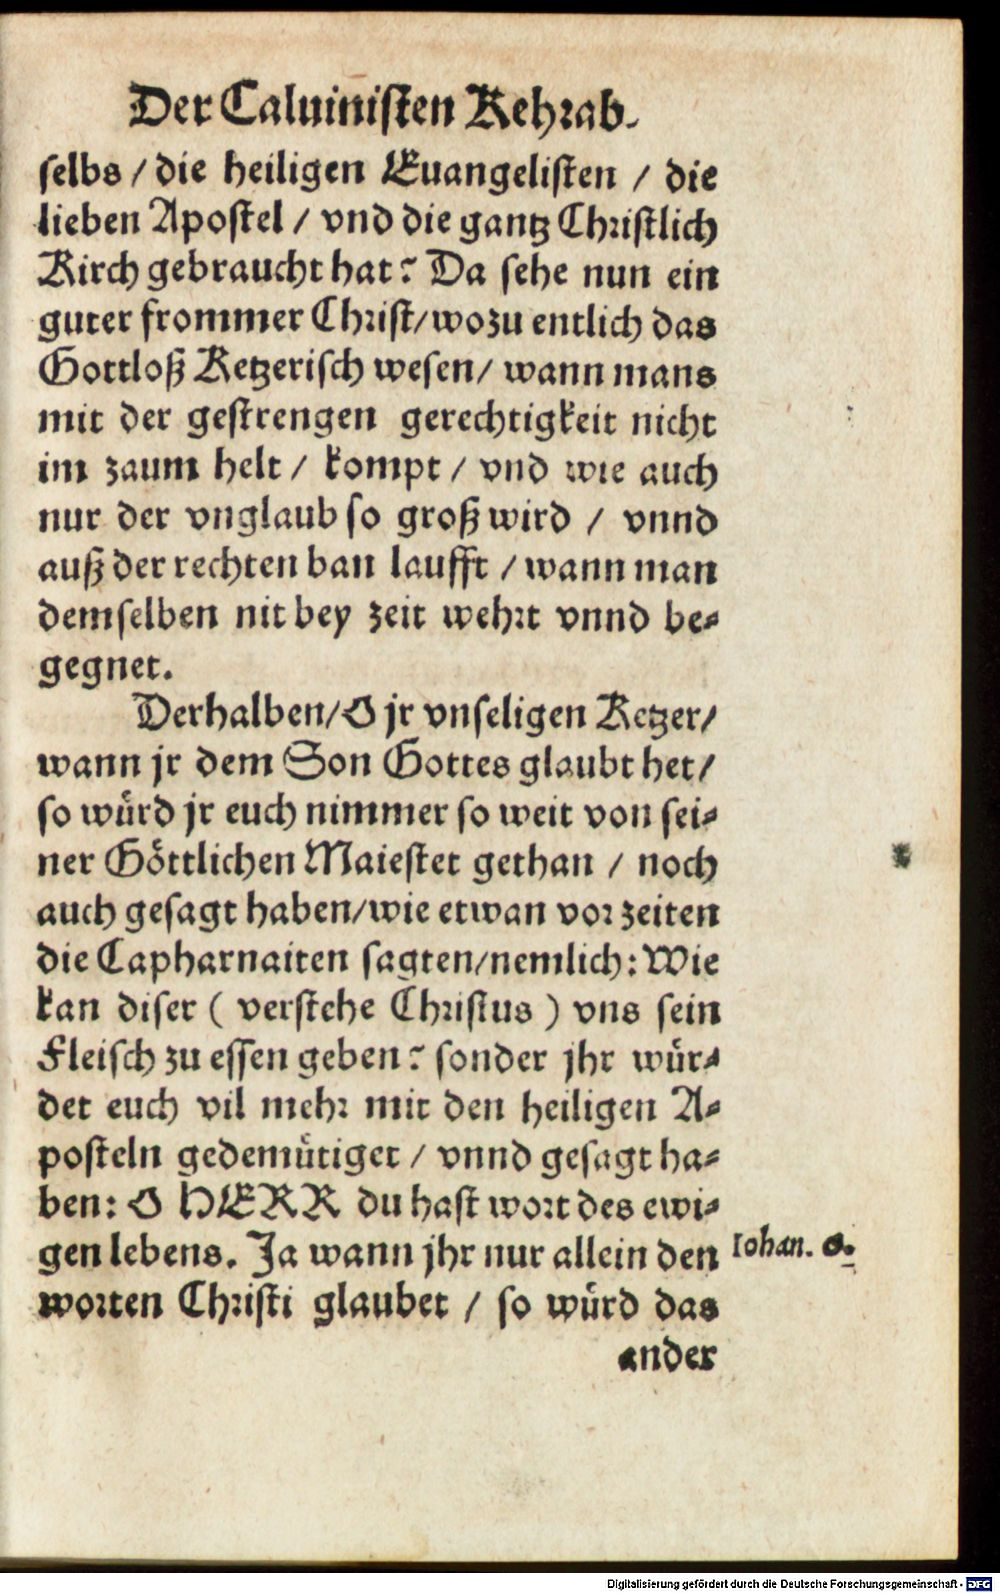 Der Caluinisten Kehrab.
selbs / die heiligen Euangelisten / die
lieben Apostel / vnd die gantz Christlich
Kirch gebraucht hat? Da sehe nun ein
guter frommer Christ/wozu entlich das
Gottloß Ketzerisch wesen/ wann mans
mit der gestrengen gerechtigkeit nicht
im zaum helt / kompt / vnd wie auch
nur der vnglaub so groß wird / vnnd
auß der rechten ban laufft / wann man
demselben nit bey zeit wehrt vnnd be-
gegnet.
Derhalben/O jr vnseligen Ketzer/
wann jr dem Son Gottes glaubt het/
so wuͤrd jr euch nimmer so weit von sei-
ner Goͤttlichen Maiestet gethan / noch
auch gesagt haben/wie etwan vor zeiten
die Capharnaiten sagten/nemlich: Wie
kan diser ( verstehe Christus ) vns sein
Fleisch zu essen geben? sonder jhr wuͤr-
det euch vil mehr mit den heiligen A-
posteln gedemuͤtiget / vnnd gesagt ha-
ben: O HERR du hast wort des ewi-
gen lebens. Ja wann jhr nur allein den
Iohan. 6.
worten Christi glaubet / so wuͤrd das
ander
Digitalisierung gefördert durch die Deutsche Forschungsgemeinschaft - DFG